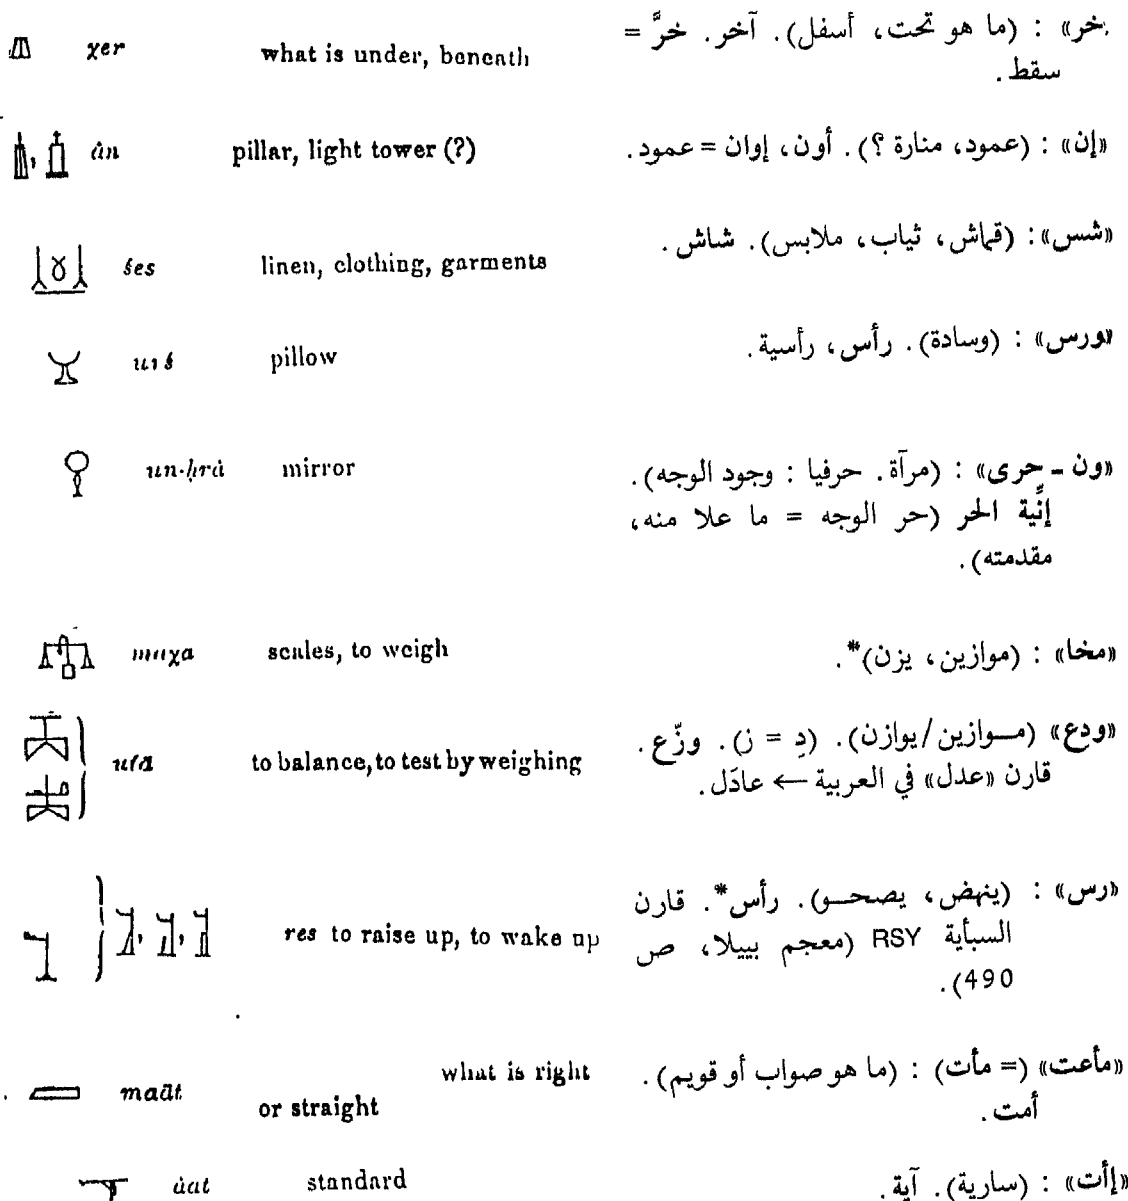 χer what is under, beneath «خر» : (ما هو تحت، أسفل). آخر. خرَّ =
سقط.
ȧn pillar, light tower (?) «إن» : (عمود، منارة ؟). أون، إوان = عمود.
śes linen, clothing, garments «شس» : (قماش، ثياب، ملابس). شاش.
urś pillow «ورس» : (وسادة). رأس، رأسية.
un-ḥrȧ mirror «ون - حرى» : (مرآة. حرفيا : وجود الوجه).
إنِّية الحر (حر الوجه = ما علا منه،
مقدمته).
maχa scales, to weigh «مخا» : (موازين، يزن)*.
to balance, to test by weighing «ودع» (مـوازين/يوازن). (دِ = ز). وزّع.
قارن «عدل» في العربية ← عادَل.
res to raise up, to wake up «رس» : (ينهض، يصحـو). رأس*. قارن
السبأية RSY (معجم بييلا، ص
490).
maāt what is right «مأعت» (= مأت) : (ما هو صواب أو قويم).
or straight أمت.
ȧat standard «إأت» : (سارية). آية.